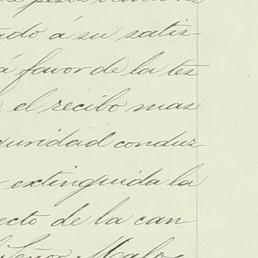 ado á su satis-
a favor de la tes
el recibo mas
guridad conduz-
extinguida la
ecto de la can
Señor Malos